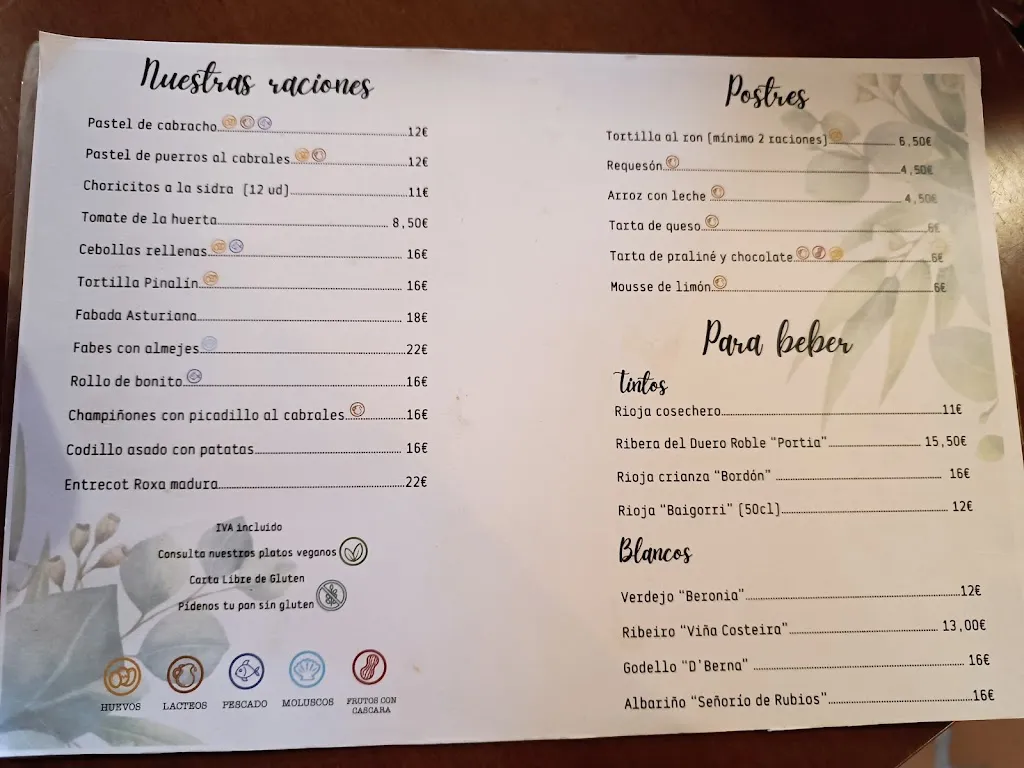 Nuestras raciones
Pastel de cabracho 12€
Pastel de puerros al cabrales 12€
Choricitos a la sidra (12 ud) 11€
Tomate de la huerta 8,50€
Cebollas rellenas 16€
Tortilla Pinalín 16€
Fabada Asturiana 18€
Fabes con almejes 22€
Rollo de bonito 16€
Champiñones con picadillo al cabrales 16€
Codillo asado con patatas 16€
Entrecot Roxa madura 22€
IVA incluido
Consulta nuestros platos veganos
Carta Libre de Gluten
Pídenos tu pan sin gluten
HUEVOS LACTEOS PESCADO MOLUSCOS FRUTOS CON CASCARA
Postres
Tortilla al ron (mínimo 2 raciones) 6,50€
Requesón 4,50€
Arroz con leche 4,50€
Tarta de queso 6€
Tarta de praliné y chocolate 6€
Mousse de limón 6€
Para beber
Tintos
Rioja cosechero 11€
Ribera del Duero Roble "Portia" 15,50€
Rioja crianza "Bordón" 16€
Rioja "Baigorri" (50cl) 12€
Blancos
Verdejo "Beronia" 12€
Ribeiro "Viña Costeira" 13,00€
Godello "D'Berna" 16€
Albariño "Señorío de Rubios" 16€